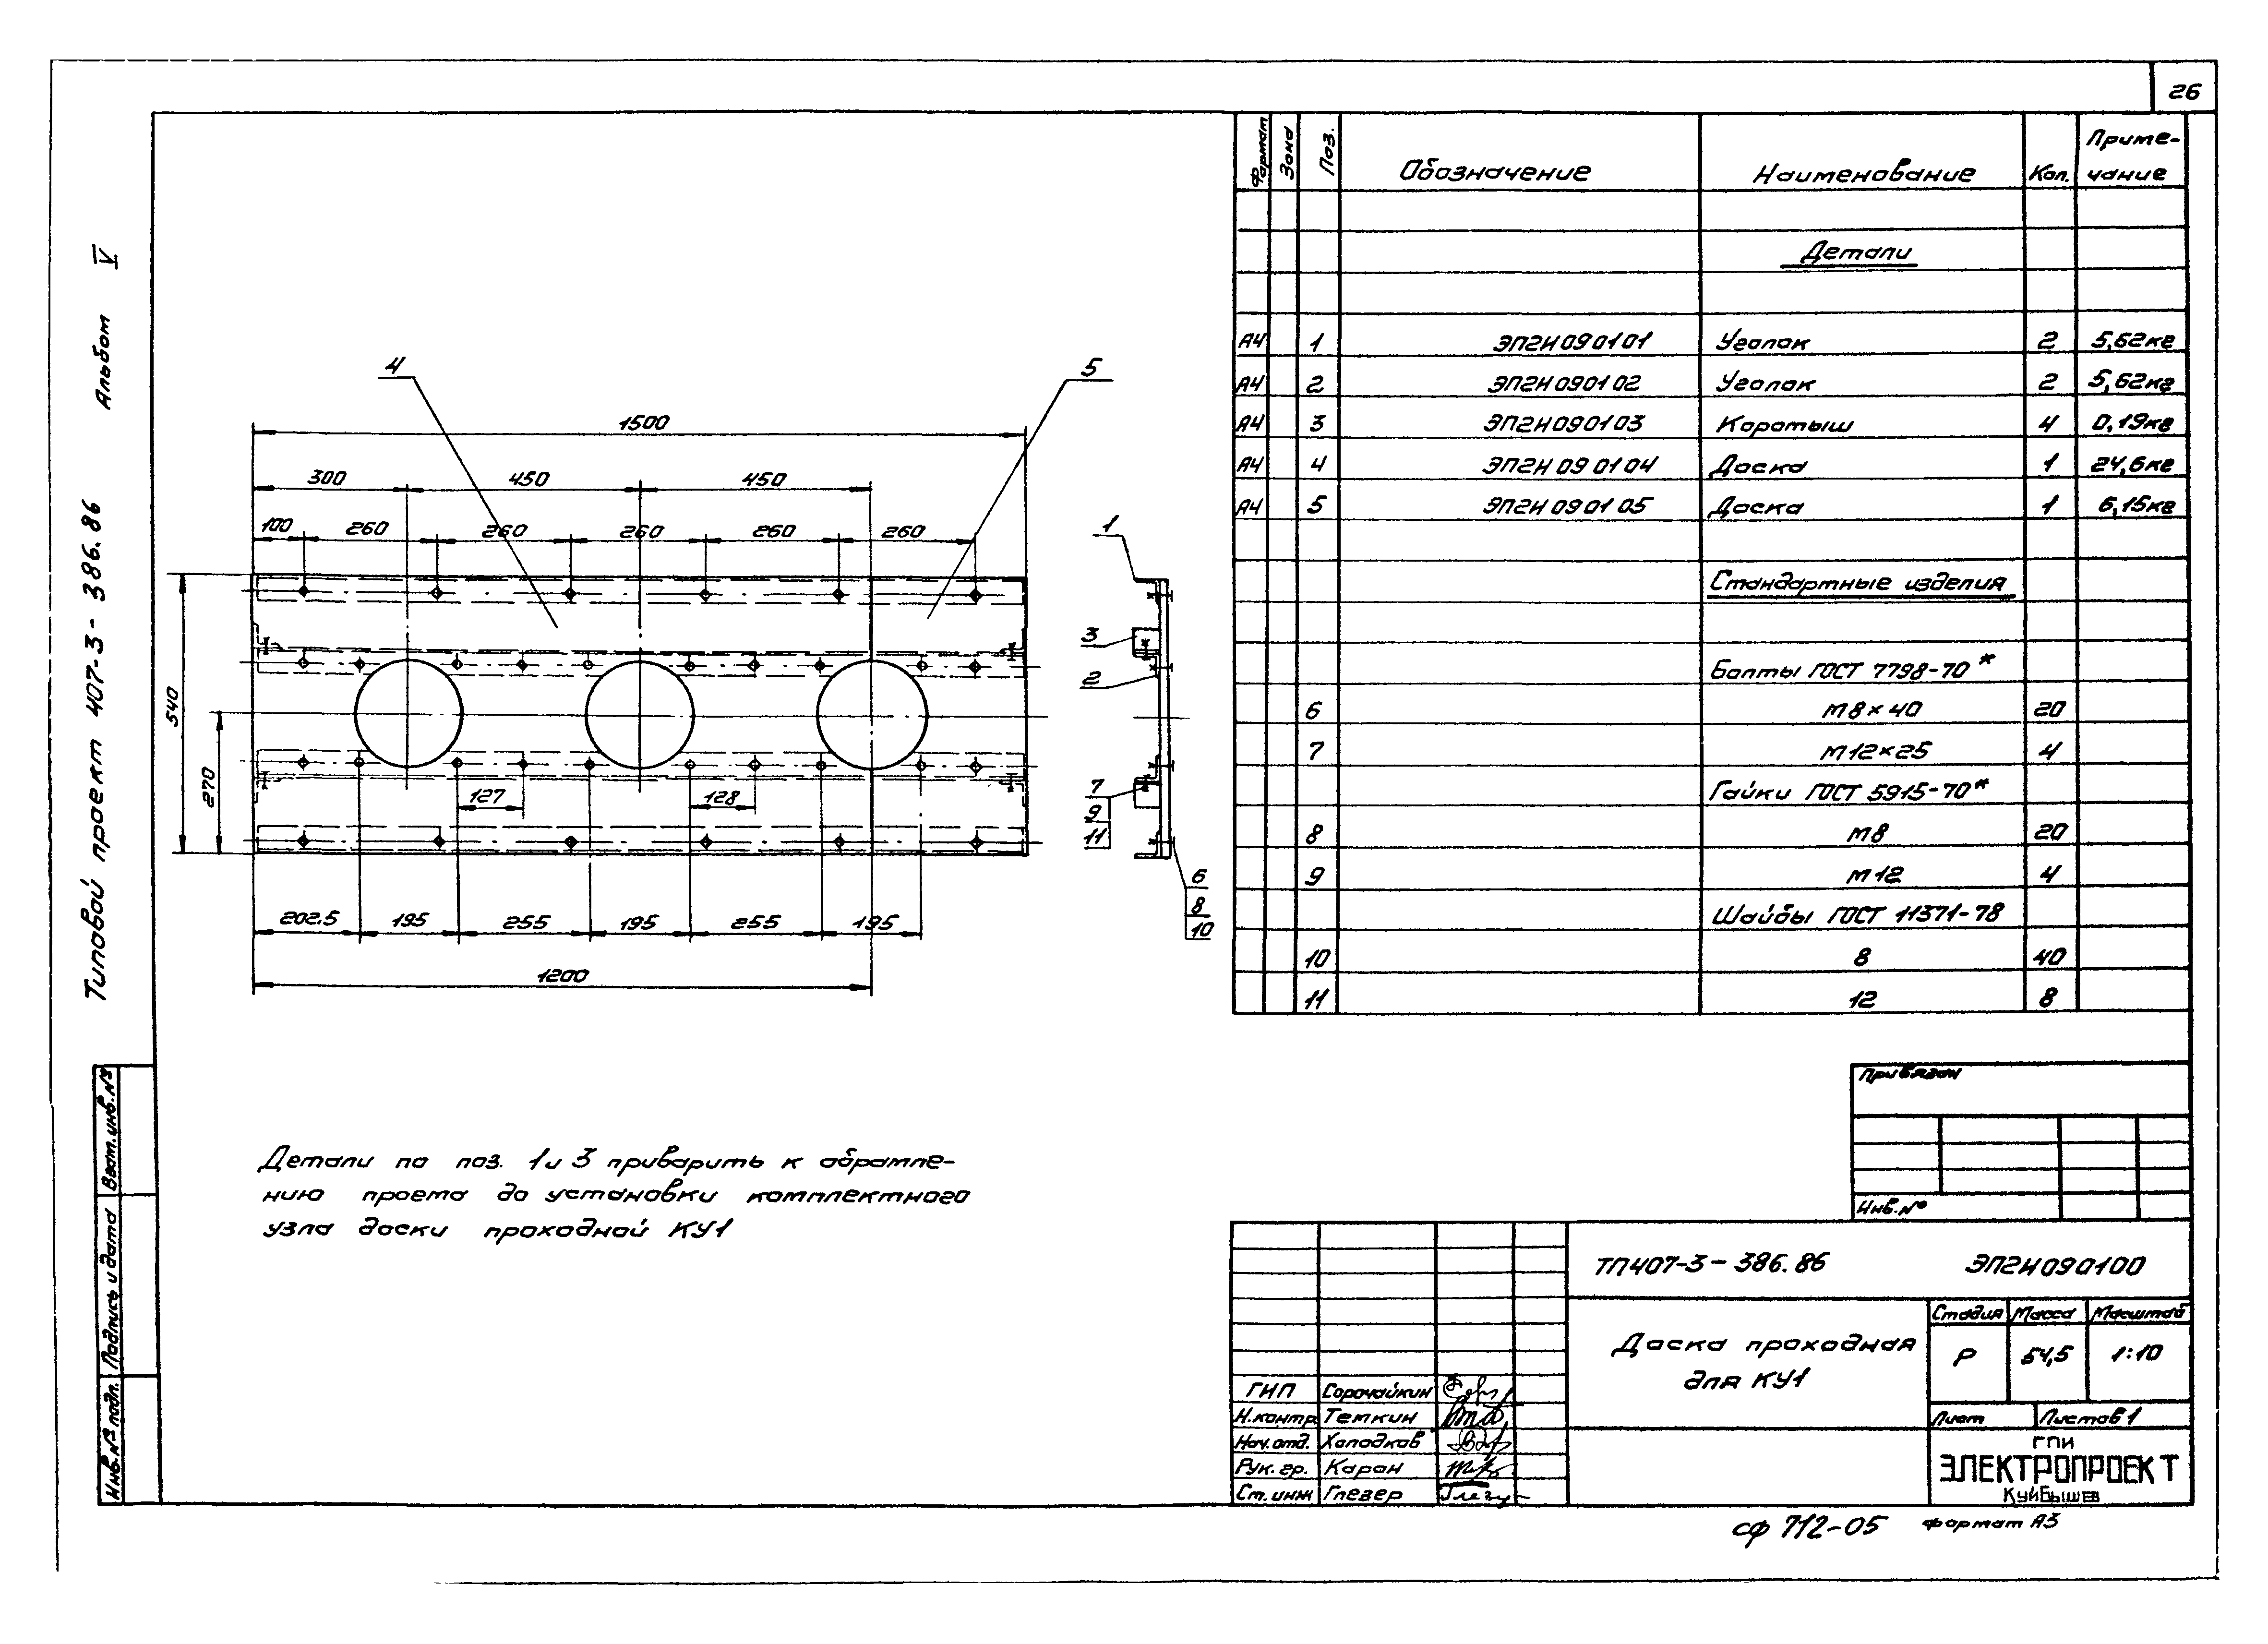 26
Типовой проект 407-3-386.86 Альбом V
4
5
1500
300 450 450
100 260 260 260 260 260
540
270
127 128
202.5 195 255 195 255 195
1200
1
3
2
7
9
11
6
8
10
Детали по поз. 1 и 3 приварить к обрамле-
нию проема до установки комплектного
узла доски проходной КУ1
Формат Зона Поз. Обозначение Наименование Кол. Приме-
чание
Детали
А4 1 ЭП2Н090101 Уголок 2 5,62кг
А4 2 ЭП2Н090102 Уголок 2 5,62кг
А4 3 ЭП2Н090103 Коротыш 4 0,19кг
А4 4 ЭП2Н090104 Доска 1 24,6кг
А4 5 ЭП2Н090105 Доска 1 6,15кг
Стандартные изделия
Болты ГОСТ 7798-70*
6 М8×40 20
7 М12×25 4
Гайки ГОСТ 5915-70*
8 М8 20
9 М12 4
Шайбы ГОСТ 11371-78
10 8 40
11 12 8
Привязан
Инв.№
ТП407-3-386.86 ЭП2Н090100
Доска проходная
для КУ1
Стадия Масса Масштаб
Р 54,5 1:10
Лист Листов 1
ГПИ
ЭЛЕКТРОПРОЕКТ
Куйбышев
ГИП Сорочайкин
Н.контр. Темкин
Нач.отд. Холодков
Рук.гр. Каран
Ст.инж Глезер
Инв.№ подл. Подпись и дата Взам.инв.№
сф 712-05 Формат А3